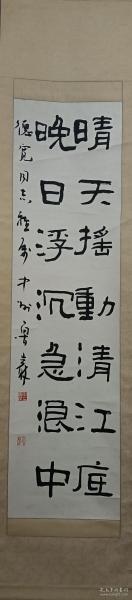 晴天搖動清江底
晚日浮沉急浪中
德寬同志雅屬 中州